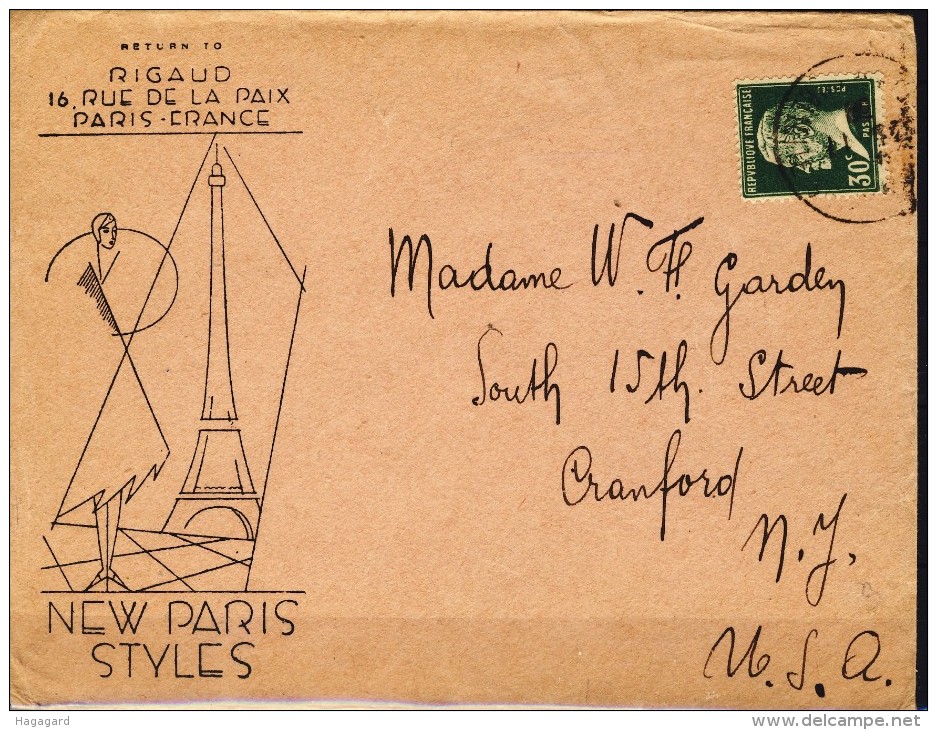 RETURN TO
RIGAUD
16, RUE DE LA PAIX
PARIS - FRANCE
REPVBLIQUE FRANÇAISE
POSTES
30c
PAS
Madame W. H. Garden
South 15th. Street
Cranford
N. J.
U. S. A.
NEW PARIS
STYLES
Hagagard
www.delcampe.net